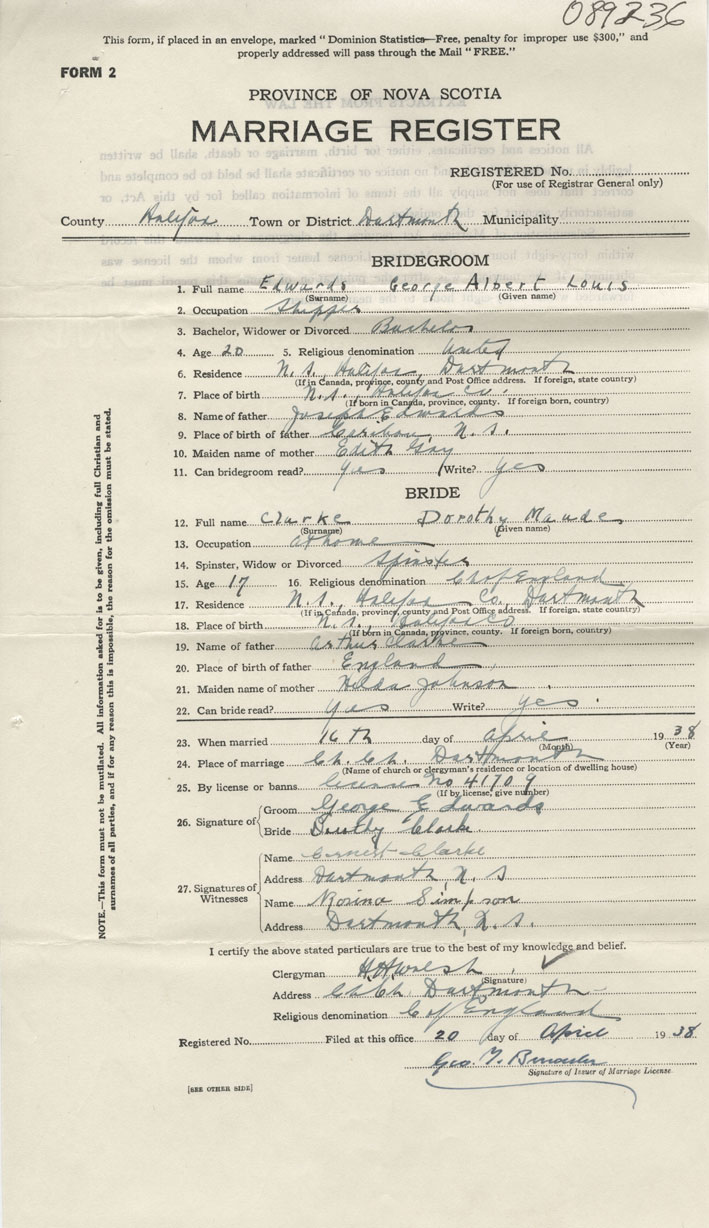 089236
This form, if placed in an envelope, marked "Dominion Statistics—Free, penalty for improper use $300," and
properly addressed will pass through the Mail "FREE."
FORM 2
PROVINCE OF NOVA SCOTIA
MARRIAGE REGISTER
REGISTERED No.
(For use of Registrar General only)
County Halifax Town or District Dartmouth Municipality
BRIDEGROOM
1. Full name Edwards George Albert Louis
(Surname) (Given name)
2. Occupation Shipper
3. Bachelor, Widower or Divorced Bachelor
4. Age 20 5. Religious denomination United
6. Residence N.S., Halifax, Dartmouth
(If in Canada, province, county and Post Office address. If foreign, state country)
7. Place of birth N.S., Halifax Co.
(If born in Canada, province, county. If foreign born, country)
8. Name of father Joseph Edwards
9. Place of father N.S.
10. Maiden name of mother Edith Gay
11. Can bridegroom read? yes Write? yes
BRIDE
12. Full name Clarke Dorothy Maude
(Surname) (Given name)
13. Occupation at home
14. Spinster, Widow or Divorced Spinster
15. Age 17 16. Religious denomination Ch of England
17. Residence N.S., Halifax Co., Dartmouth
(If in Canada, province, county and Post Office address. If foreign, state country)
18. Place of birth N.S., Halifax Co
(If born in Canada, province, county. If foreign born, country)
19. Name of father Arthur Clarke
20. Place of birth of father England
21. Maiden name of mother Hilda Johnson
22. Can bride read? yes Write? yes.
23. When married 16th day of April 1938
(Month) (Year)
24. Place of marriage Ch. Ch. Dartmouth
(Name of church or clergyman's residence or location of dwelling house)
25. By license or banns License No 41709
(If by license, give number)
26. Signature of Groom George Edwards
Bride Dorothy Clarke
27. Signatures of Witnesses
Name Ernest Clarke
Address Dartmouth, N.S
Name Rosina Simpson
Address Dartmouth, N.S.
I certify the above stated particulars are true to the best of my knowledge and belief.
Clergyman H. H. Walsh
(Signature)
Address Ch. Ch. Dartmouth
Religious denomination C of England
Registered No. Filed at this office 20 day of April 1938
Geo.
Signature of Issuer of Marriage License.
[SEE OTHER SIDE]
NOTE.—This form must not be mutilated. All information asked for is to be given, including full Christian and
surnames of all parties, and if for any reason this is impossible, the reason for the omission must be stated.